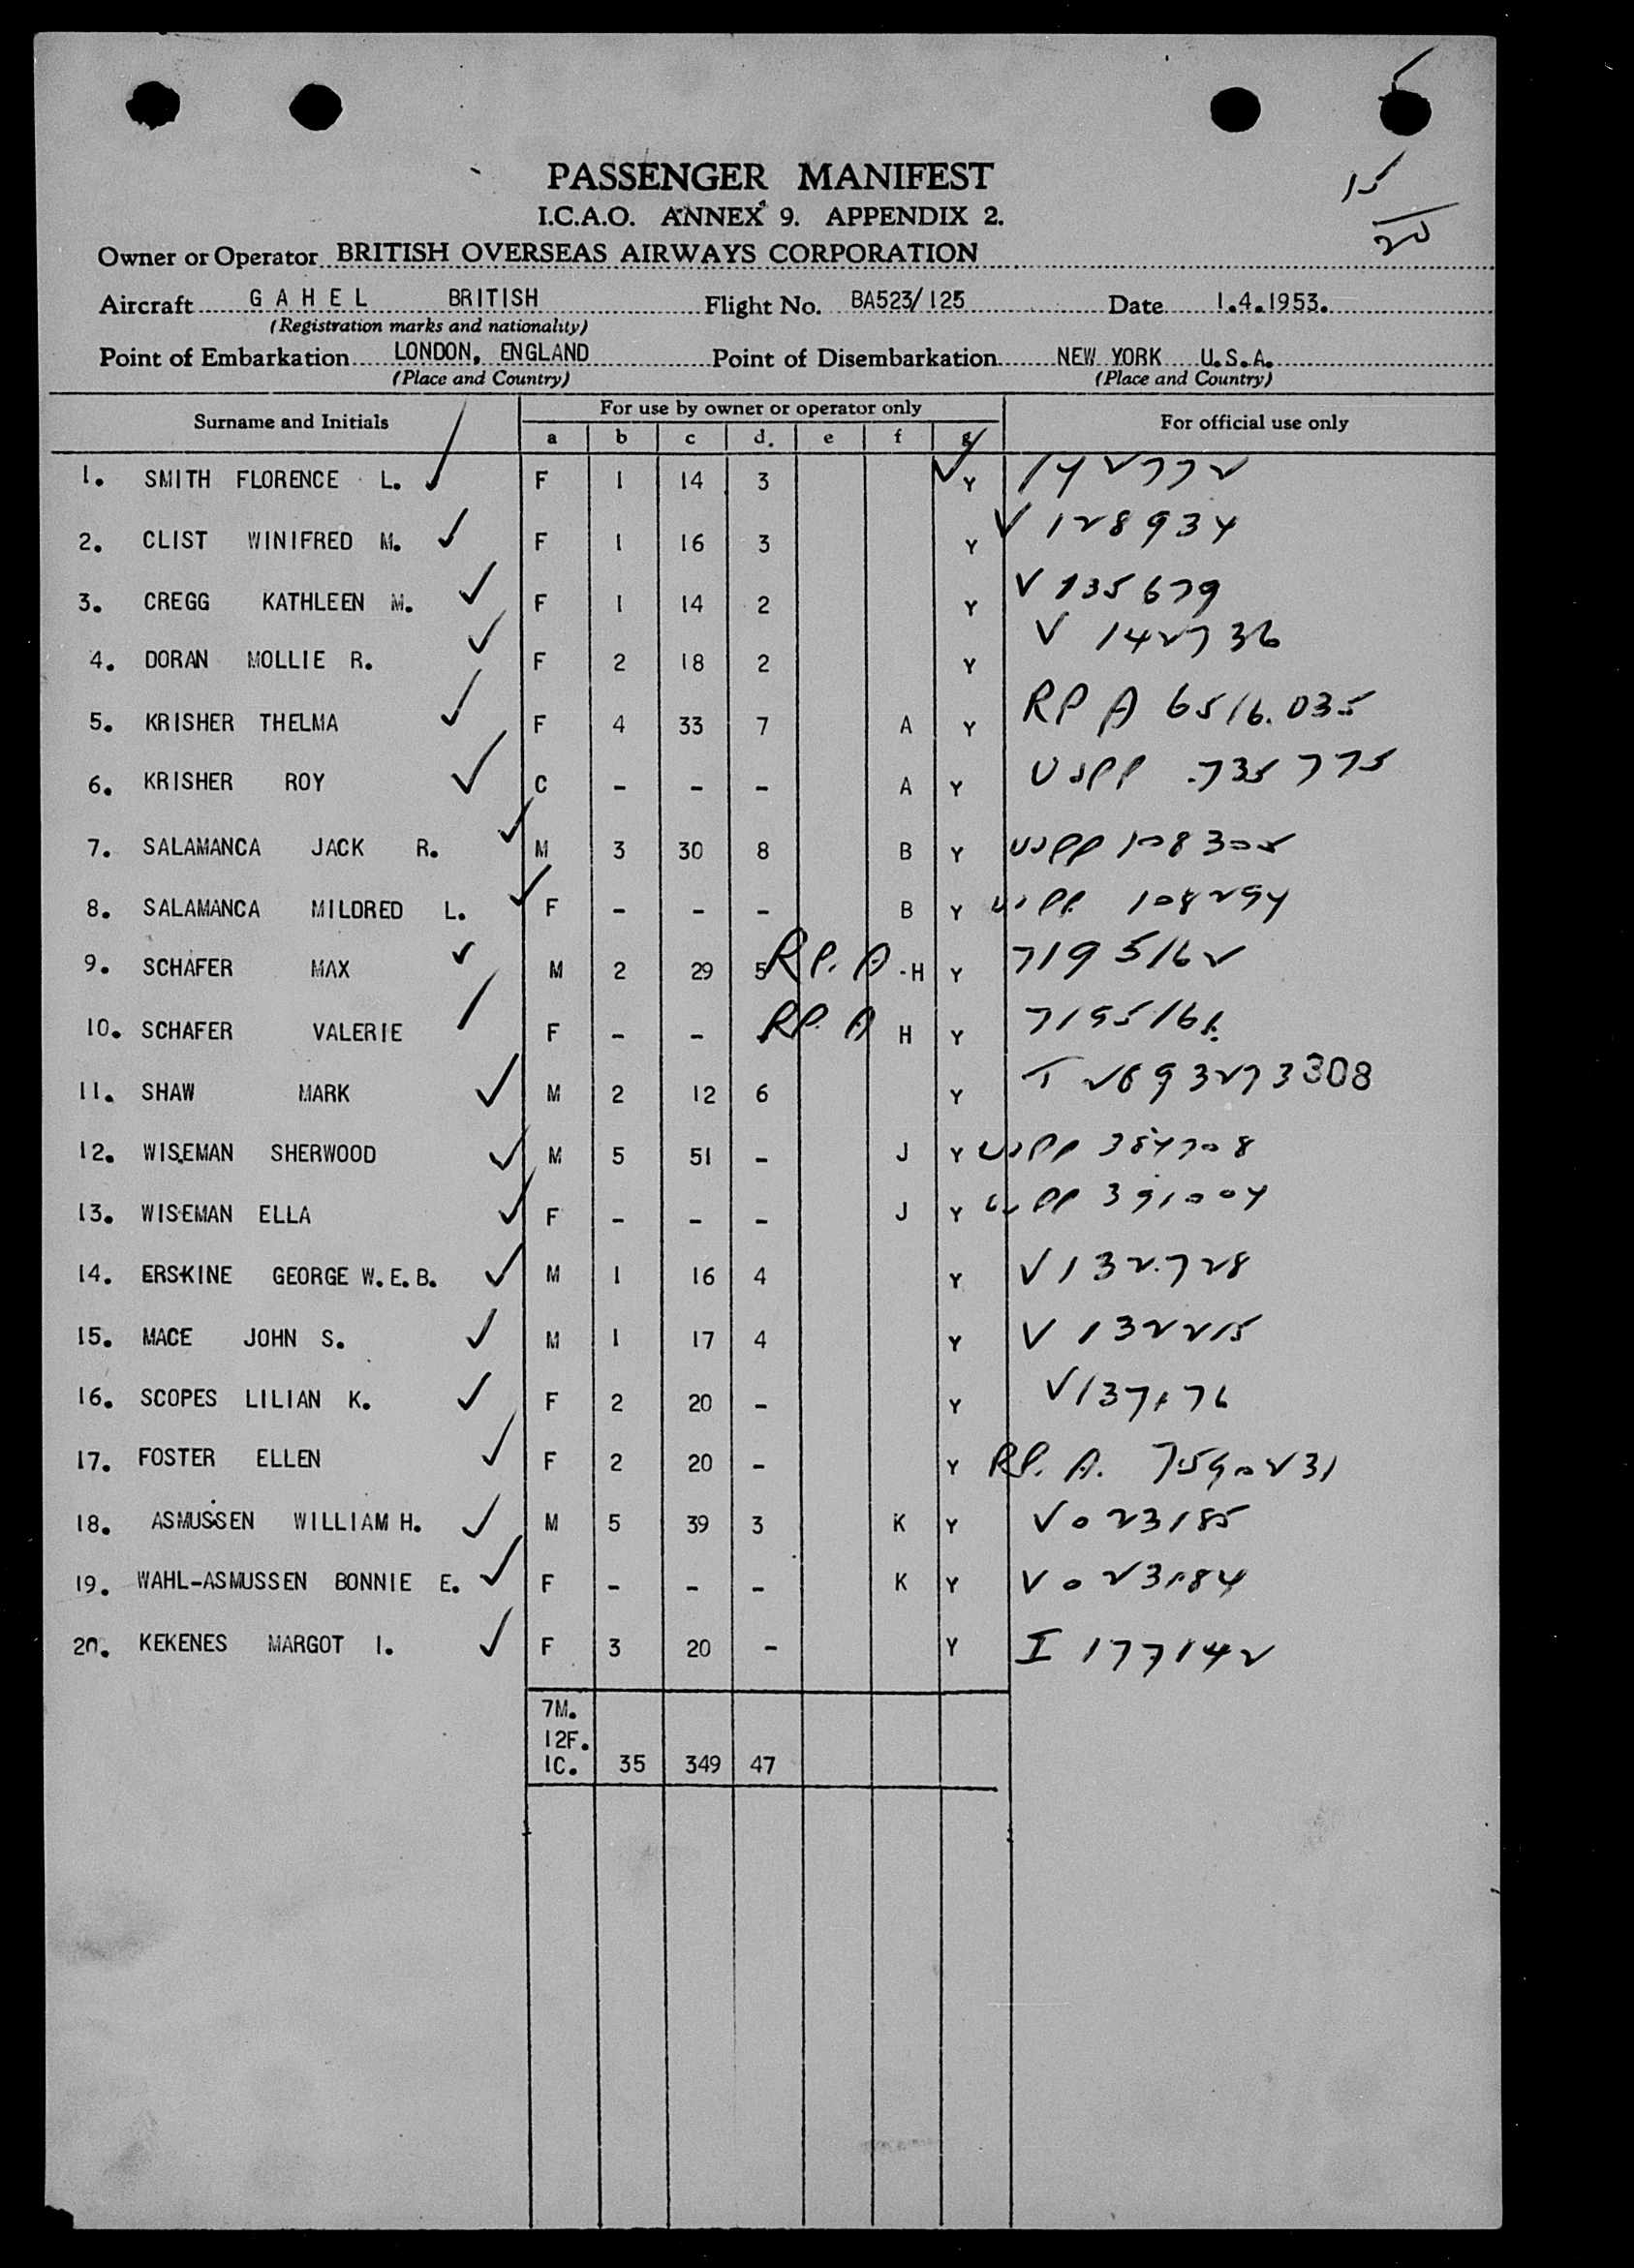 PASSENGER MANIFEST
15
I.C.A.O. ANNEX 9. APPENDIX 2.
20
Owner or Operator BRITISH OVERSEAS AIRWAYS CORPORATION
Aircraft G A H E L BRITISH Flight No. BA523/125 Date 1.4.1953.
(Registration marks and nationality)
Point of Embarkation LONDON, ENGLAND Point of Disembarkation NEW YORK U.S.A.
(Place and Country) (Place and Country)
Surname and Initials For use by owner or operator only For official use only
a b c d. e f g
1. SMITH FLORENCE L. F 1 14 3 Y 142772
2. CLIST WINIFRED M. F 1 16 3 Y V 128934
3. CREGG KATHLEEN M. F 1 14 2 Y V 135679
4. DORAN MOLLIE R. F 2 18 2 Y V 142736
5. KRISHER THELMA F 4 33 7 A Y RP A 6516.035
6. KRISHER ROY C - - - A Y USPP 735775
7. SALAMANCA JACK R. M 3 30 8 B Y USPP 108305
8. SALAMANCA MILDRED L. F - - - B Y USPP 108294
9. SCHAFER MAX M 2 29 5 RP. A H Y 7195162
10. SCHAFER VALERIE F - - RP. A H Y
11. SHAW MARK M 2 12 6 Y 308
12. WISEMAN SHERWOOD M 5 51 - J Y USPP 384708
13. WISEMAN ELLA F - - - J Y USPP 391004
14. ERSKINE GEORGE W.E.B. M 1 16 4 Y V 132728
15. MACE JOHN S. M 1 17 4 Y V 132215
16. SCOPES LILIAN K. F 2 20 - Y V 137176
17. FOSTER ELLEN F 2 20 - Y RP. A. 7590231
18. ASMUSSEN WILLIAM H. M 5 39 3 K Y V 023185
19. WAHL-ASMUSSEN BONNIE E. F - - - K Y V 023184
20. KEKENES MARGOT I. F 3 20 - Y I 177142
7M.
12F.
1C. 35 349 47